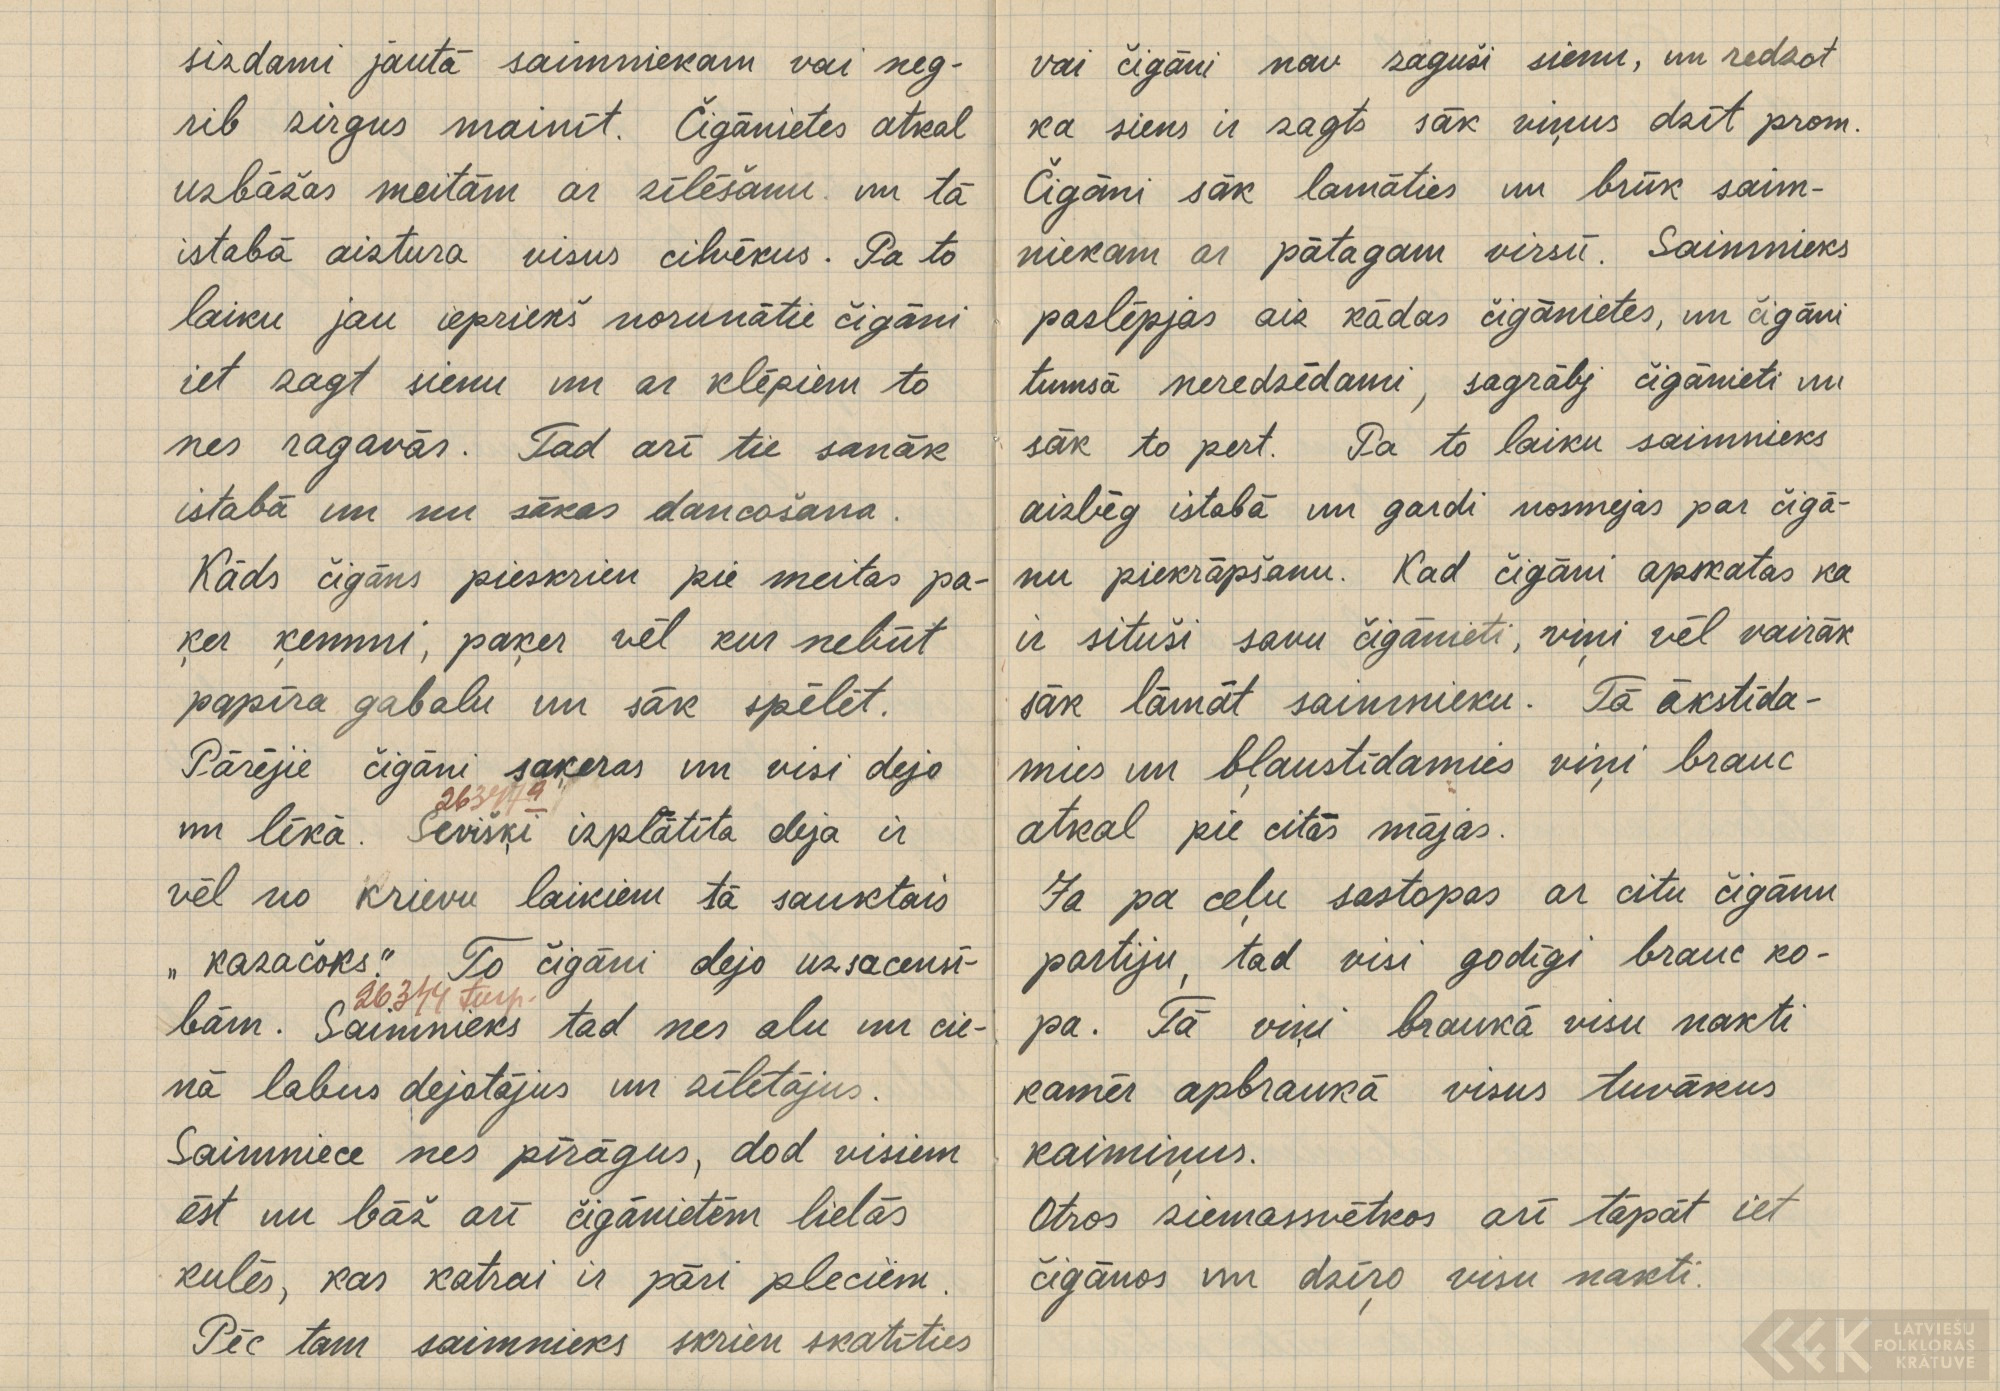 sizdami jautā saimniekam vai neg-
rib zirgus mainīt. Čigānietes atkal
uzbāžas meitām ar zīlēšanu un tā
istabā aiztura visus cilvēkus. Pa to
laiku jau iepriekš norunātie čigāni
iet zagt sienu un ar klēpiem to
nes ragavās. Tad arī tie sanāk
istabā un nu sākas dancošana.
Kāds čigāns pieskrien pie meitas pa-
ķer ķemmi, paķer vēl kur nebūt
papīra gabalu un sāk spēlēt.
Pārējie čigāni sakeras un visi dejo
26344 a
un lēkā. Sevišķi izplātīta deja ir
vēl no krievu laikiem tā sauktais
„kazačoks." To čigāni dejo uzsacensī-
26344 turp.
bām. Saimnieks tad nes alu un cie-
nā labus dejotājus un zīlētājus.
Saimniece nes pīrāgus, dod visiem
ēst un bāž arī čigānietēm lielās
kulēs, kas katrai ir pāri pleciem.
Pēc tam saimnieks skrien skatīties
vai čigāni nav zaguši sienu, un redzot
ka siens ir zagts sāk viņus dzīt prom.
Čigāni sāk lamāties un brūk saim-
niekam ar pātagam virsū. Saimnieks
paslēpjas aiz kādas čigānietes, un čigāni
tumsā neredzēdami, sagrābj čigānieti un
sāk to pert. Pa to laiku saimnieks
aizbēg istabā un gardi nosmejas par čigā-
nu piekrāpšanu. Kad čigāni apskatas ka
ir situši savu čigānieti, viņi vēl vairāk
sāk lāmāt saimnieku. Tā ākstīda-
mies un bļaustīdamies viņi brauc
atkal pie citās mājas.
Ja pa ceļu sastopas ar citu čigānu
partiju, tad visi godīgi brauc ko-
pa. Tā viņi braukā visu nakti
kamēr apbraukā visus tuvākus
kaimiņus.
Otros ziemassvētkos arī tāpāt iet
čigānos un dzīŗo visu nakti.
LATVIEŠU
FOLKLORAS
KRĀTUVE